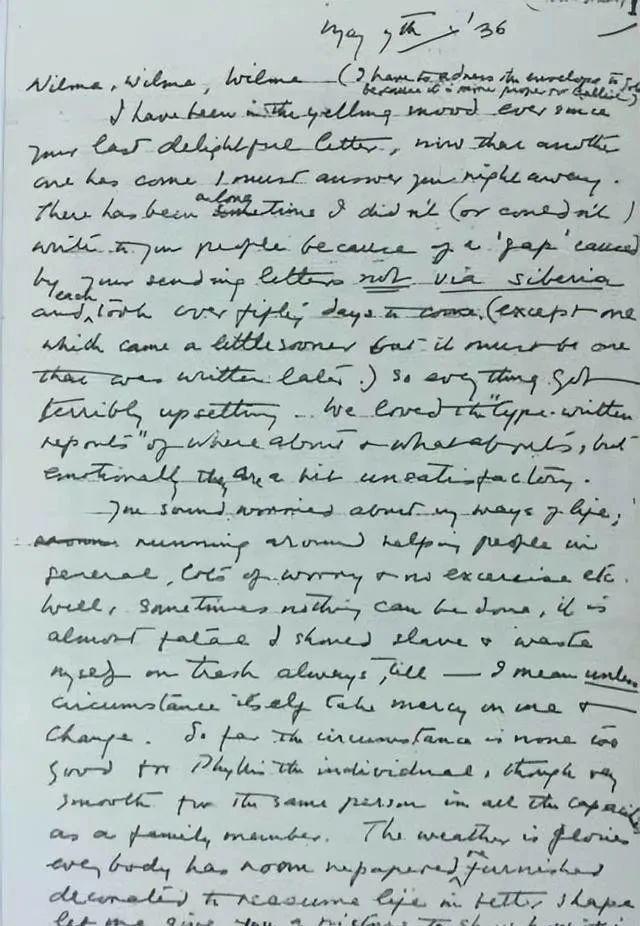 May 7th '36
Wilma, Wilma, Wilma (I have to adress the envelope to
because it's more proper so called)
I have been in the yelling mood ever since
your last delightful letter, now that another
one has come I must answer you right away.
There has been along sometime I didn't (or couldn't)
write to you people because of a 'gap' caused
by your sending letters not via Siberia
and each took over fifty days to come. (except one
which came a little sooner but it must be one
that was written later.) So everything got
terribly upsetting. We loved the "type-written
reports" of where abouts & what abouts, but
emotionally they are a bit unsatisfactory.
You sound worried about my ways of life,
running around helping people in
general, lots of worry & no excercise etc.
Well, sometimes nothing can be done, it is
almost fatal I should slave & waste
myself on trash always, till — I mean unless
circumstance itself take mercy on me &
change. So far the circumstance is none too
good for Phyllis the individual, though very
smooth for the same person in all the capacities
as a family member. The weather is glorious
everybody has room repapered, refurnished
decorated to reassume life in better shape
let me give you a picture to show